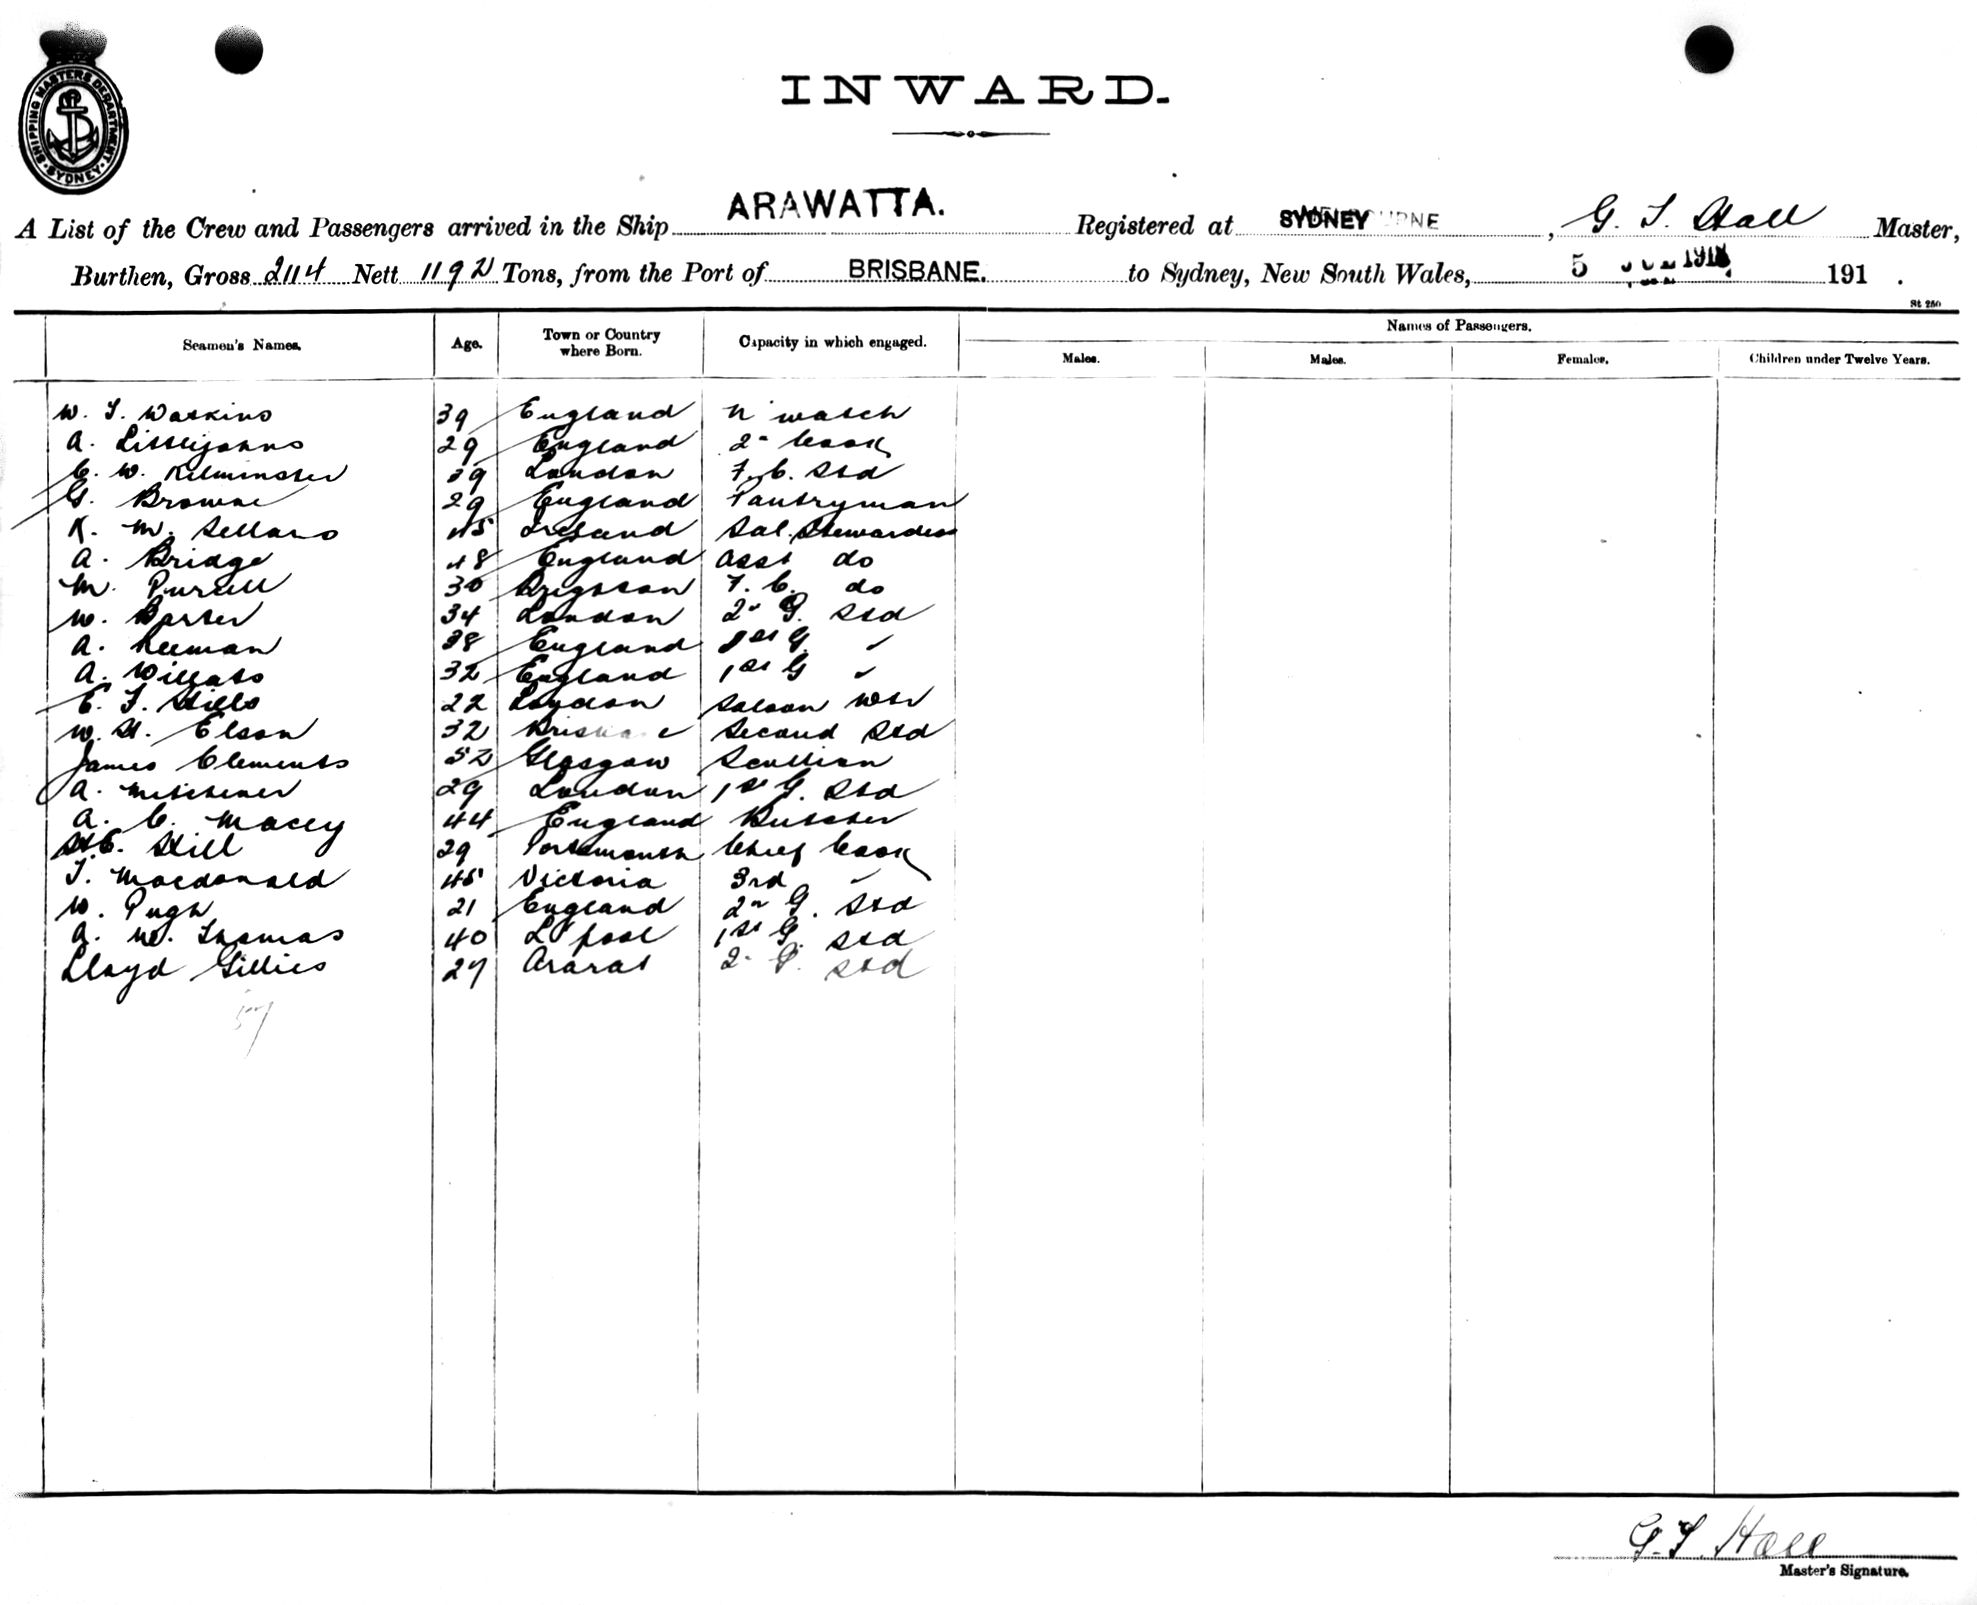 SHIPPING MASTERS DEPARTMENT
SYDNEY
INWARD.
A List of the Crew and Passengers arrived in the Ship ARAWATTA. Registered at SYDNEY, G. T. Hall Master,
Burthen, Gross 2114 Nett 1192 Tons, from the Port of BRISBANE. to Sydney, New South Wales, 5 191 .
St 250
Seamen's Names. Age. Town or Country where Born. Capacity in which engaged. Names of Passengers.
Males. Males. Females. Children under Twelve Years.
W. T. Watkins 39 England N watch
A. Littlejohns 29 England 2n Cook
C. W. Kilminster 39 London F. C. Std
G. Browne 29 England Pantryman
K. M. Sellars 45 Ireland Sal. Stewardess
A. Bridge 48 England Asst do
M. Purcell 30 Brighton F. C. do
W. Barter 34 London 2n G. Std
A. Leeman 38 England 1st G. "
A. Willats 32 England 1st G "
E. F. Hills 22 London Saloon Wtr
W. H. Elson 32 Brisbane Second Std
James Clements 52 Glasgow Scullion
A. Mitchener 29 London 1st G. Std
A. C. Macey 44 England Butcher
H. C. Hill 29 Portsmouth Chief Cook
T. Macdonald 45 Victoria 3rd "
W. Pugh 21 England 2n G. Std
A. W. Thomas 40 L'pool 1st G. Std
Lloyd Gillies 27 Ararat 2n P. Std
57
G. T. Hall
Master's Signature.